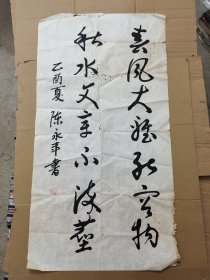 春風大雅能容物
秋水文章不染塵
乙酉夏 陈永年書